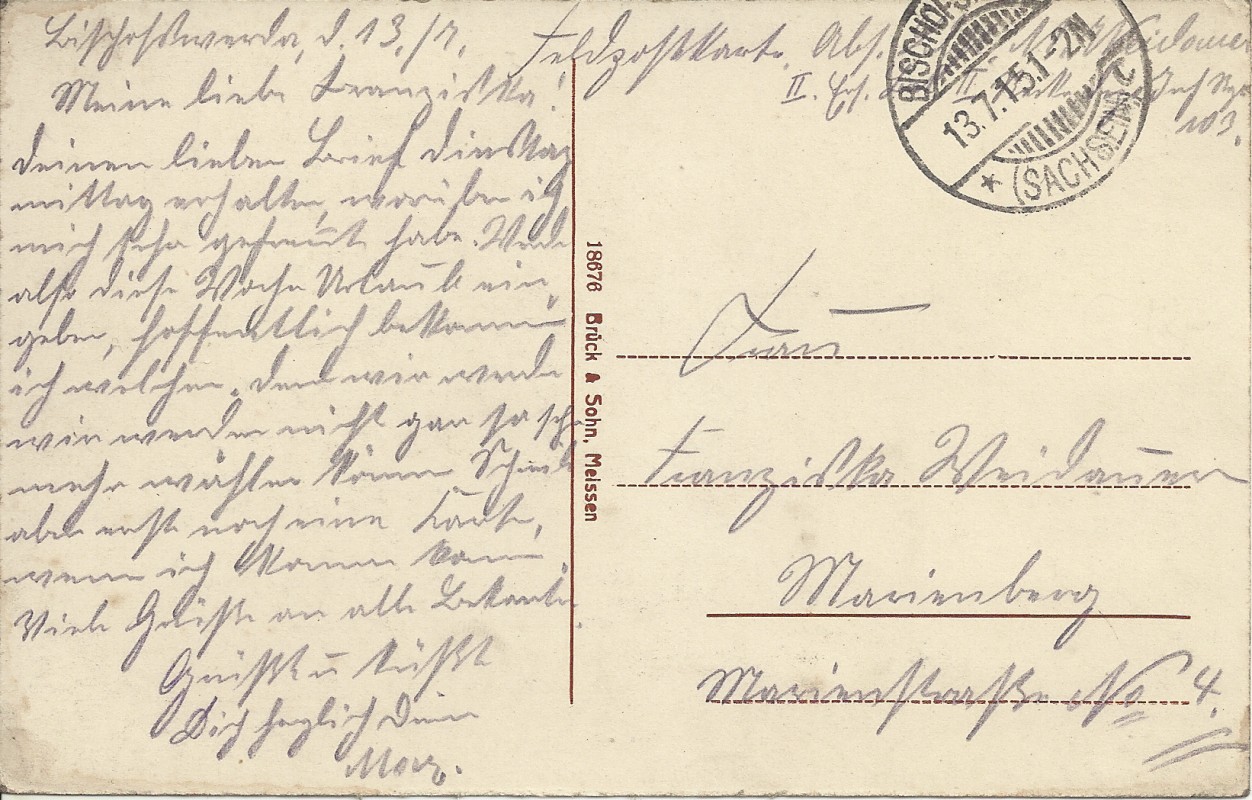 Bischofswerda, d. 13./7.
Meine liebe Franziska!
Deinen lieben Brief Dinstag
mittag erhalten, worüber ich
mich sehr gefreut habe. Werde
also diese Woche Urlaub ein
geben, hoffentlich bekomme
ich welchen. Denn wir werde
wir werden nicht gar so sehr
mehr wählen können Schreib
aber erst noch eine Karte,
wenn ich komme kann.
Viele Grüße an alle Bekannte.
Grüßt u küßt
Dich herzlich Dein
Max.
Feldpostkarte. Abs. Weidauer
II. Ers. Inf Rgt
103.
BISCHOFS
13.7.15.1-2N
* (SACHSEN) C
18676 Brück & Sohn, Meissen
Frau
Franziska Weidauer
Marienberg
Marienstraße No 4.